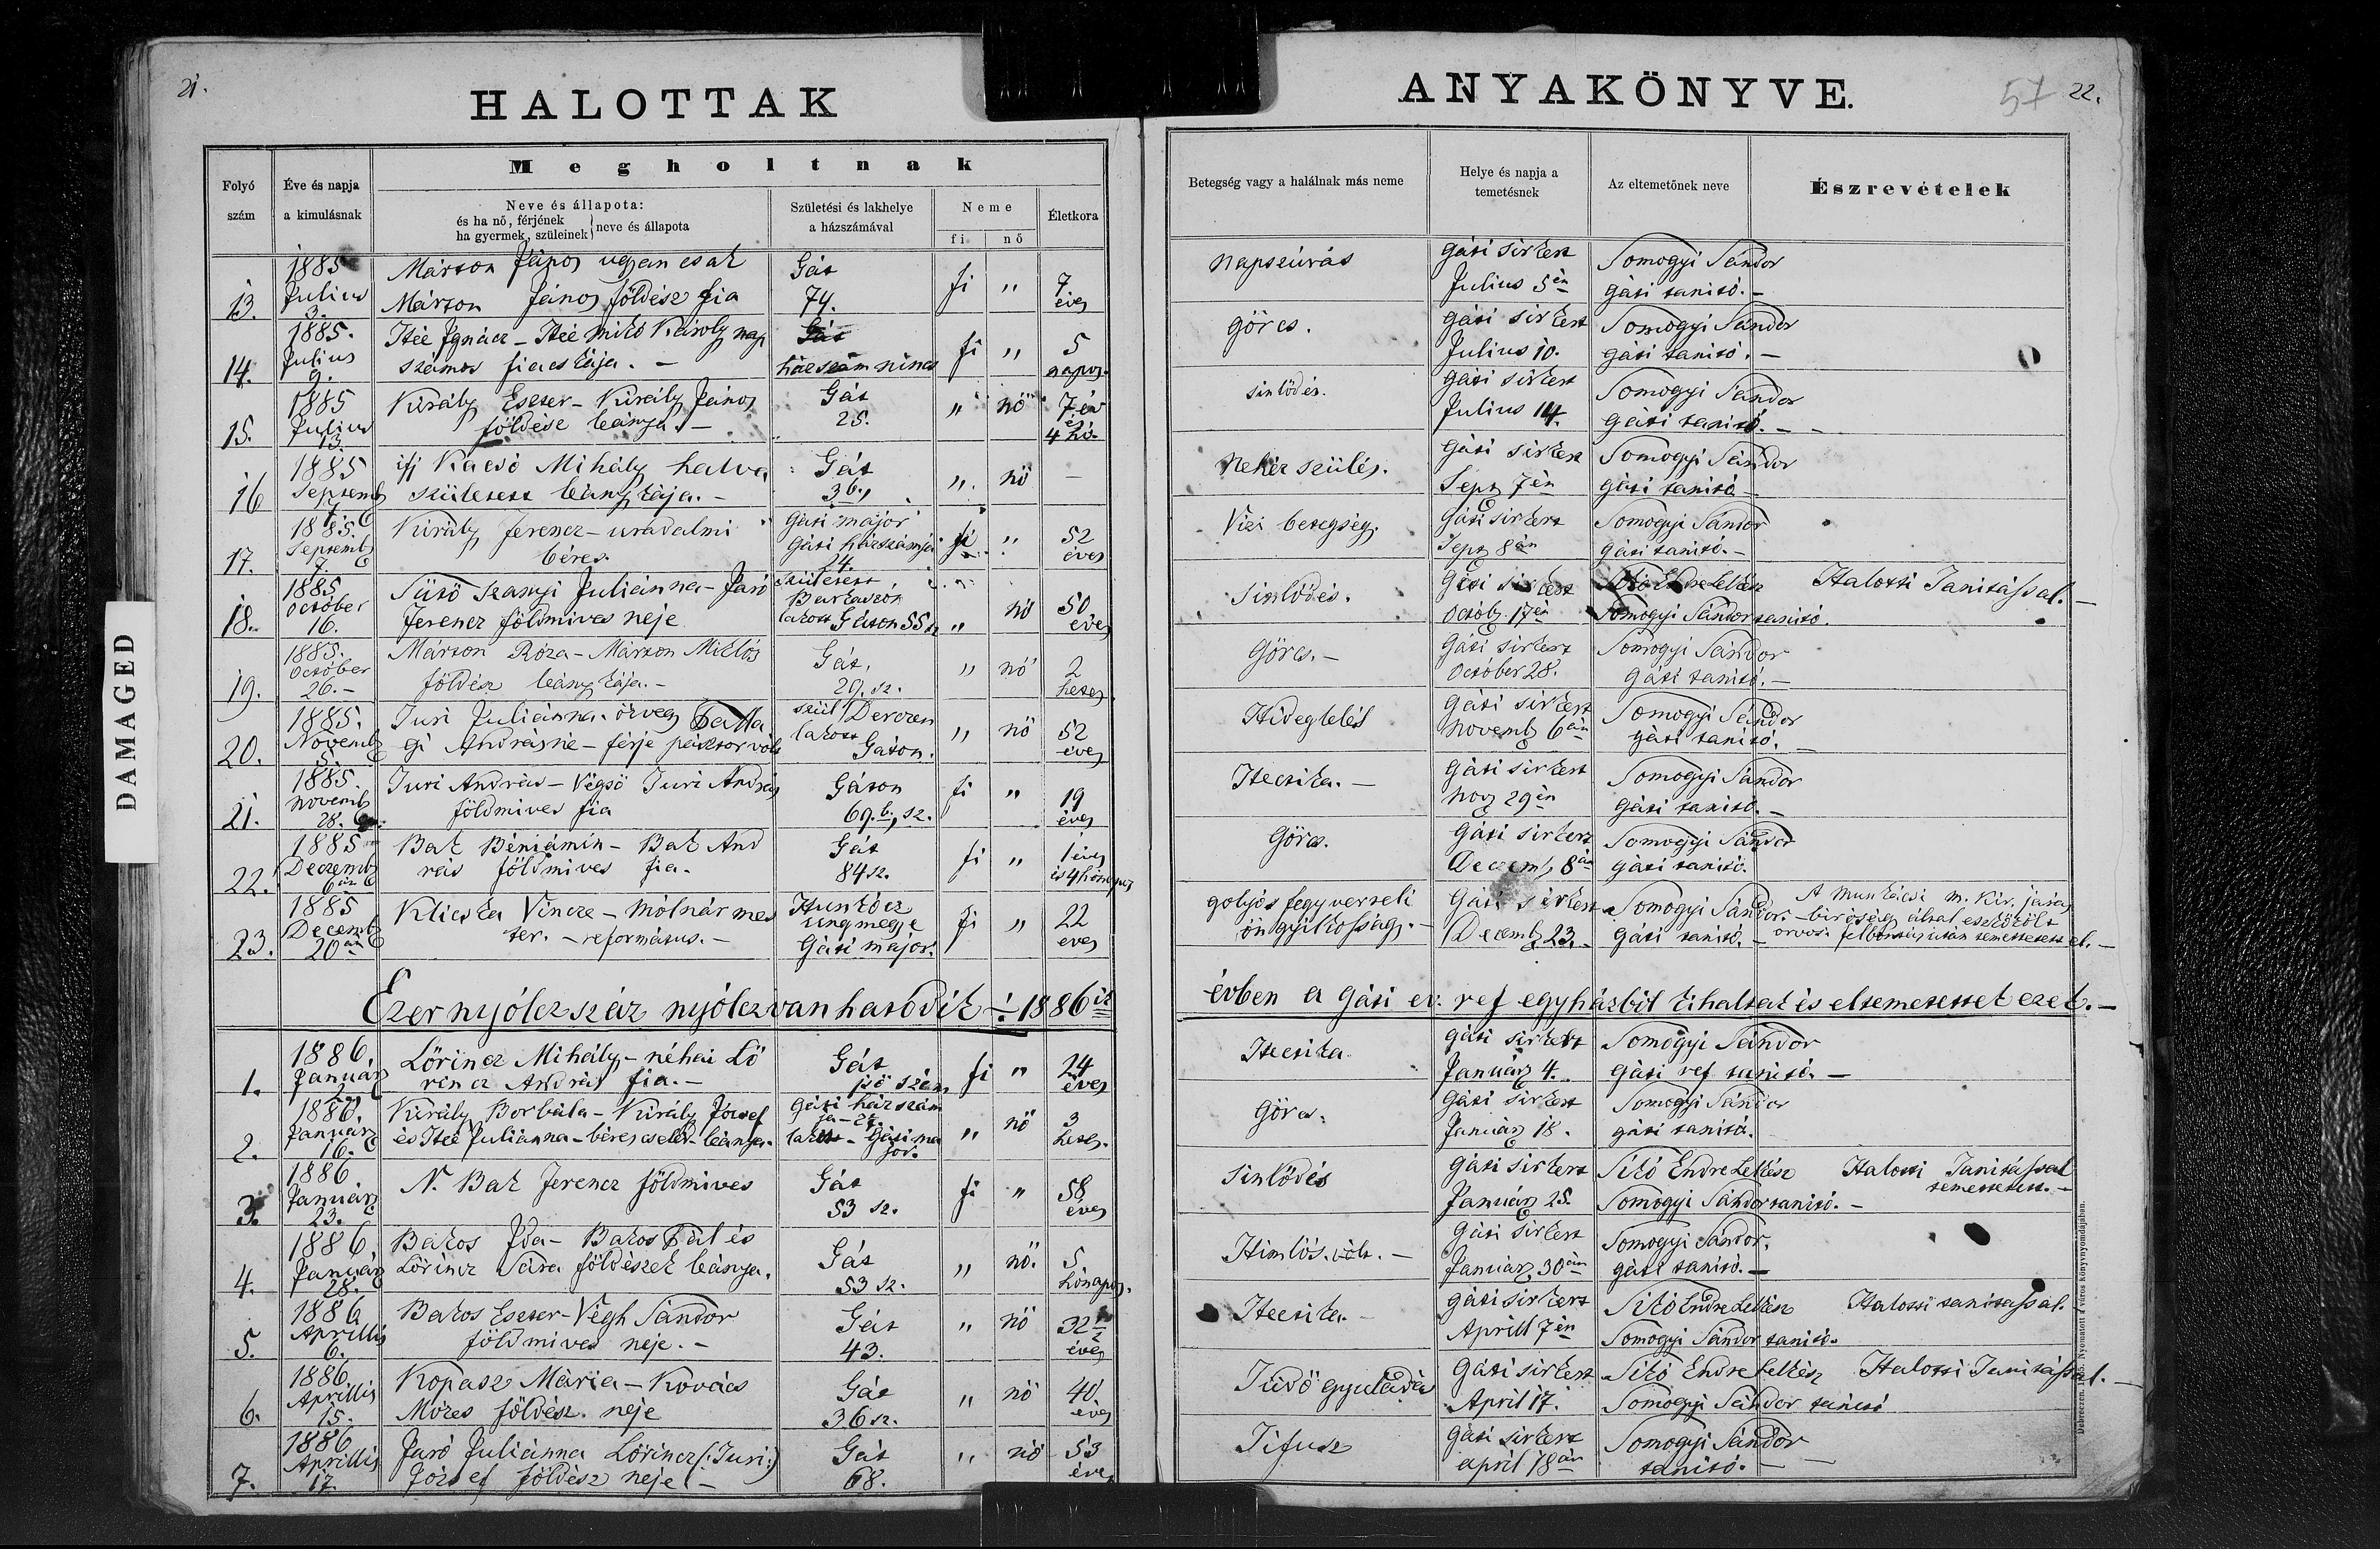 21.
HALOTTAK
Folyó szám
Éve és napja a kimulásnak
Megholtnak
Neve és állapota:
és ha nő, férjének
ha gyermek, szüleinek } neve és állapota
Születési és lakhelye a házszámával
Neme
fi
nő
Életkora
13.
1885
Julius
3.
Márton János ugyan csak
Márton János földész fia
Gát
74.
fi
"
7
éves
14.
1885.
Julius
9.
Ignácz
Károly nap
számos fiacskája. –
Gát
házszám nincs
fi
"
5
napos.
15.
1885
Julius
13.
Király Eszter – Király János
földész leánya. –
Gát
25.
"
nő
7 év
és
4 hó.
16
1885
Septemb
6
ifj Kacsó Mihály halva
született leánykája. –
Gát
36.,
"
nő
–
17.
1885.
Septemb
7.
Király Ferencz – uradalmi
béres.
Gáti major
Gáti házszámja
24.
fi
"
52
éves
18.
1885
October
16.
Sütő Szanyi Juliánna – Jaró
Ferencz földmives neje
született
Barkaszón
lakott Gáton 55 sz
"
nő
50
éves
19.
1885.
October
26. –
Márton Róza – Márton Miklós
földész leánykája. –
Gát,
29. sz.
"
nő
2
hetes
20.
1885.
Novemb
5.
Turi Juliánna. özvegy Balla
gi Andrásné – férje pásztor vólt
szül Derczen
lakott
Gáton.
"
nő
52
éves
21.
1885.
novemb
28.
Turi András – Végső Turi András
földmives fia
Gáton
69. b., sz.
fi
"
19
éves
22.
1885
Deczemb
6án
Bak Béniámin – Bak And
rás földmives fia.
Gát
84 sz.
fi
"
1 éves
és 4 hónapos
23.
1885
Decemb
20án
Klicska Vincze – mólnár mes
ter. – református. –
Hunkócz
ungmegye
Gáti major.
fi
"
22
éves
Ezernyólczszáz nyólczvanhatodik ÷ 1886ik
1.
1886.
Január
2.
Lőrincz Mihály – néhai Lő
rincz András fia. –
Gát
fi
"
24
éves
2.
1886.
Január
16.
Király Borbála – Király József
és Juliánna – béres cseléd – leánya.
Gáti házszám
ja – 24.
lakott – Gáti ma
jor.
"
nő
3
hetes.
3.
1886
Január
23.
N. Bak Ferencz földmives
Gát
53 sz.
fi
"
58
éves
4.
1886.
Január
28.
Bakos Ida – Bakos Pál és
Lőrincz Sára földészek leánya.
Gát
53 sz.
"
nő.
5
hónapos.
5.
1886
Aprillis
6.
Bakos Eszter – Végh Sándor
földmives neje. –
Gát
43.
"
nő
32½
éves
6.
1886
Aprillis
15.
Kopasz Mária – Kovács
Mózes földész. neje
Gát
36 sz.
"
nő
40
éves
7.
1886
Aprillis
17.
Jaró Juliánna Lőrincz (:Turi:)
József földész neje –
Gát
68.
"
nő
53
éves
DAMAGED
ANYAKÖNYVE.
57
22.
Betegség vagy a halálnak más neme
Helye és napja a temetésnek
Az eltemetőnek neve
Észrevételek
napszúrás
Gáti sirkert
Julius 5én
Somogyi Sándor
gáti tanitó. –
Görcs.
Gáti sirkert
Julius 10.
Somogyi Sándor
gáti tanitó. –
sinlődés.
Gáti sirkert
Julius 14.
Somogyi Sándor
gáti tanitó. –
nehéz szülés.
Gáti sirkert
Sept 7én
Somogyi Sándor
gáti tanitó –
Vizi betegség.
Gáti sirkert
Sept 8án
Somogyi Sándor
gáti tanitó. –
Sinlődés.
Gáti sirkert
Octob 17én
Sitó Endre Lelkész
Somogyi Sándor tanitó.
Halotti Tanitással. –
Görcs. –
Gáti sirkert
October 28.
Somogyi Sándor
gáti tanitó. –
Hideglelés
Gáti sirkert
novemb 6án
Somogyi Sándor
gáti tanitó. –
Hectika. –
Gáti sirkert
nov 29én
Somogyi Sándor
gáti tanitó. –
Görcs.
Gáti sirkert
Deczem 8án
Somogyi Sándor
gáti tanitó.
golyós fegyverreli
öngyilkosság. –
Gáti sirkert
Decemb 23. –
Somogyi Sándor.
gáti tanitó. –
A munkácsi m. kir. járás
– biróság által eszközölt
orvosi felbonczás után temettetett el. –
évben a gáti ev. ref egyházból kihaltak és eltemettettek ezek. –
Hectika
Gáti sirkert
Január 4.
Somogyi Sándor
gáti ref tanitó. –
Görcs.
Gáti sirkert
Január 18.
Somogyi Sándor
gáti tanitó.
Sinlődés
Gáti sirkert
Január 25.
Sitó Endre Lelkész
Somogyi Sándor tanitó. –
Halotti Tanitással
temettetett. –
Himlős. vólt. –
Gáti sirkert
Január 30án
Somogyi Sándor.
gáti tanitó. –
Hectika. –
Gáti sirkert
Aprill 7én
Sitó Endre Lelkész
Somogyi Sándor tanitó.
Halotti tanitással.
Tüdő gyuladás
Gáti sirkert
April 17.
Sitó Endre Lelkész
Somogyi Sándor tanitó
Halotti Tanitással. –
Tifusz
Gáti sirkert
april 18án
Somogyi Sándor
tanitó. –
Nyomatott a város könyvnyomdájában.